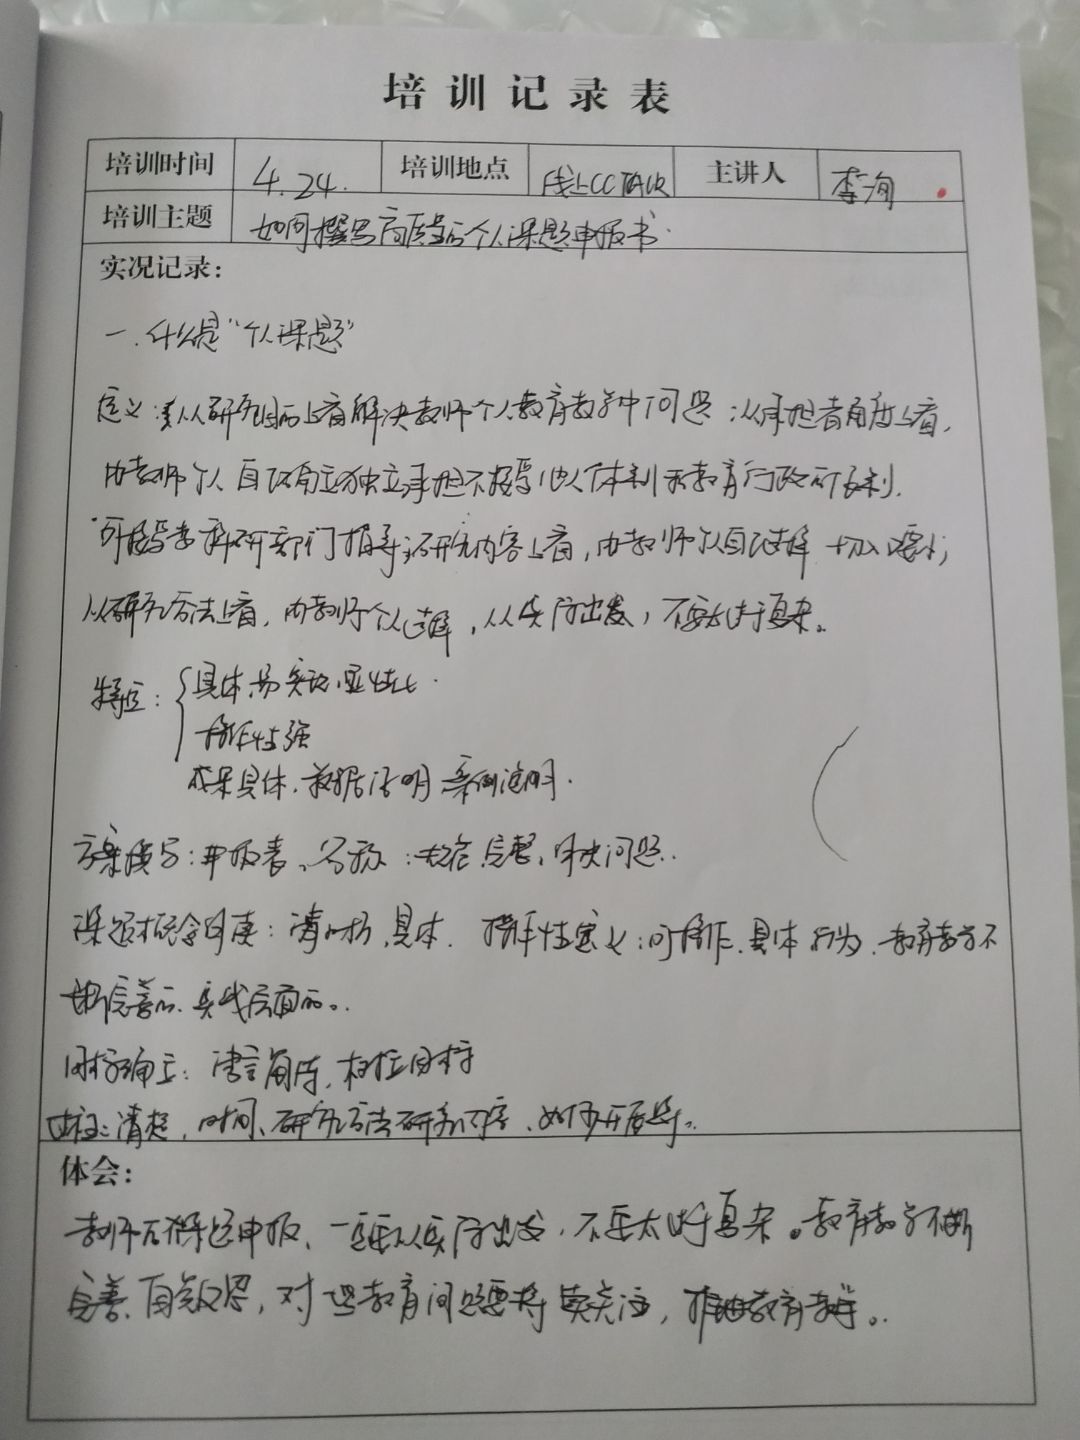 培训记录表
培训时间 4.24. 培训地点 线上CCTALK 主讲人 李洵
培训主题 如何撰写高质量的个人课题申报书.
实况记录：
一.什么是“个人课题”
定义：从研究目的上看解决教师个人教育教学中问题；从承担者角度上看，
由教师个人自己确立独立承担不接受他人体制和教育行政所制.
可接受教科研部门指导；研究内容上看，由教师个人自己选择 切入要小；
从研究方法上看，由教师个人选择，从实际出发，不要太过于复杂。
特点：具体.易实施.
操作性强
成果具体.数据证明 案例说明.
方案撰写：申报表、名称：完整、解决问题.
课题概念界定：清晰，具体. 操作性定义：可操作.具体行为.教育教学不
断完善的、实践层面的。
目标确立：语言简练，目标
过程：清楚，时间、研究方法研究内容、如何开展等。
体会：
教师在课题申报、一定要从实际出发，不要太过于复杂。教育教学不断
完善、自觉反思，对教育问题要持续关注，推进教育教学。